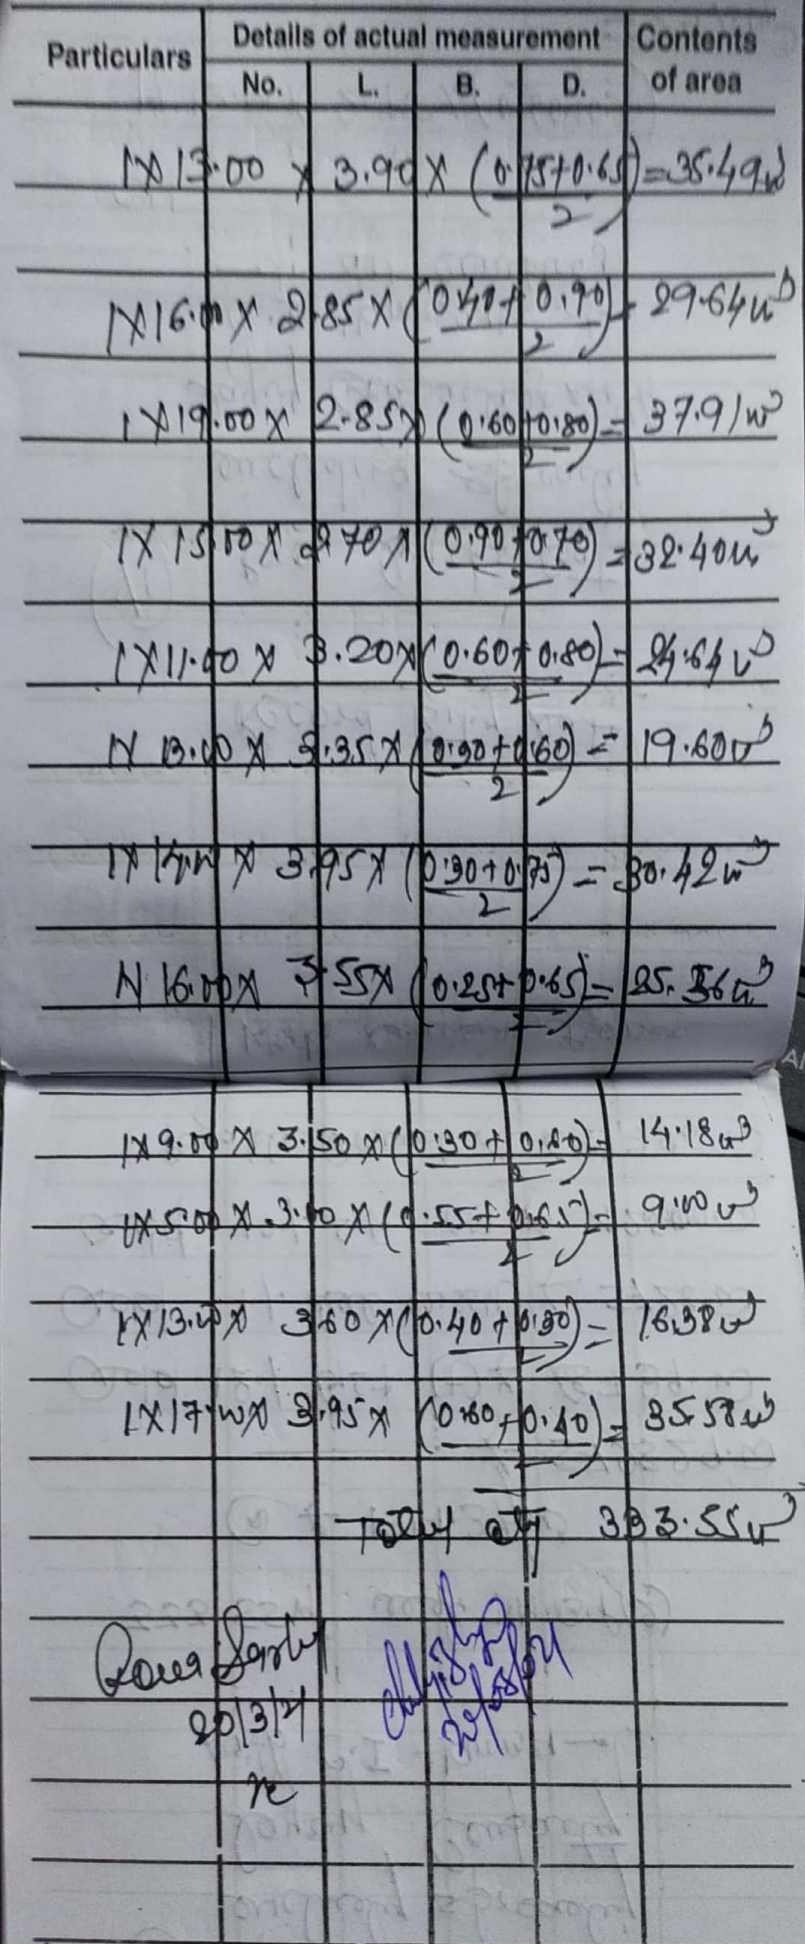 Particulars Details of actual measurement Contents of area
No. L. B. D.
1X13.00 X 3.90 X (0.75+0.65)/2 = 35.49m³
1X16.00 X 2.85 X (0.40+0.90)/2 = 29.64m³
1X19.00 X 2.85X (0.60+0.80)/2 = 37.91m³
1X15.00X 2.70X (0.90+0.70)/2 = 32.40m³
1X11.00 X 3.20X (0.60+0.80)/2 = 24.64m³
1X 13.00 X 3.35X (0.30+0.60)/2 = 19.60m³
1X X 3.95X (0.30+0.75)/2 = 30.42m³
1X 16.00X 3.55X (0.25+0.65)/2 = 25.56m³
1X9.00 X 3.50 X (0.30+0.60)/2 = 14.18m³
1X5.00X 3.00 X (0.55+0.65)/2 = 9.00m³
1X13.00X 3.60 X (0.40+0.30)/2 = 16.38m³
1X17.00X 3.95X + 0.40)/2 = 35.58m³
Total qty 333.55m³
20/3/21